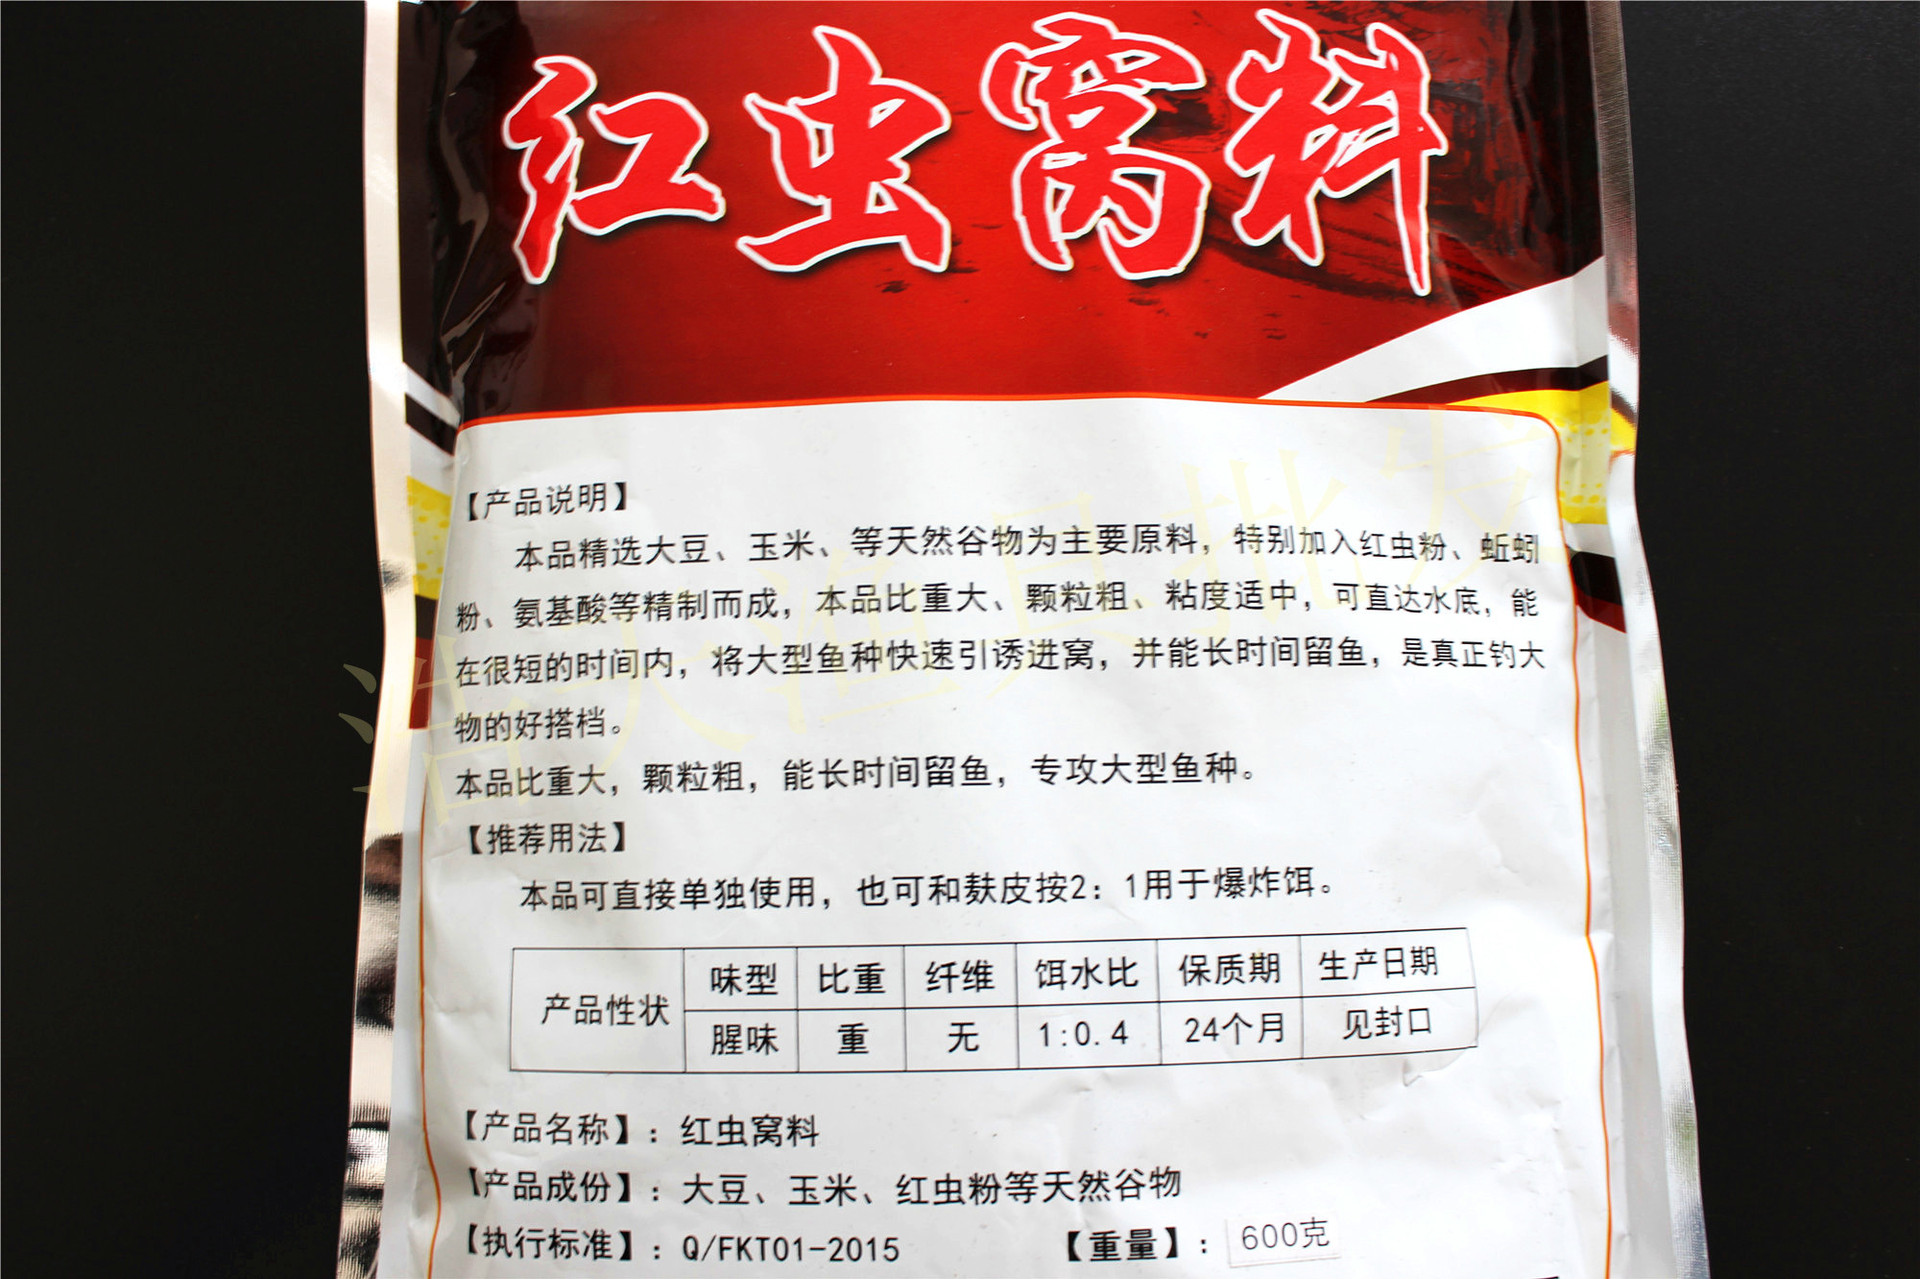 红虫窝料
【产品说明】
本品精选大豆、玉米、等天然谷物为主要原料，特别加入红虫粉、蚯蚓
粉、氨基酸等精制而成，本品比重大、颗粒粗、粘度适中，可直达水底，能
在很短的时间内，将大型鱼种快速引诱进窝，并能长时间留鱼，是真正钓大
物的好搭档。
本品比重大，颗粒粗，能长时间留鱼，专攻大型鱼种。
【推荐用法】
本品可直接单独使用，也可和麸皮按2：1用于爆炸饵。
产品性状 味型 比重 纤维 饵水比 保质期 生产日期
腥味 重 无 1:0.4 24个月 见封口
【产品名称】：红虫窝料
【产品成份】：大豆、玉米、红虫粉等天然谷物
【执行标准】：Q/FKT01-2015 【重量】：600克
浩天渔具批发